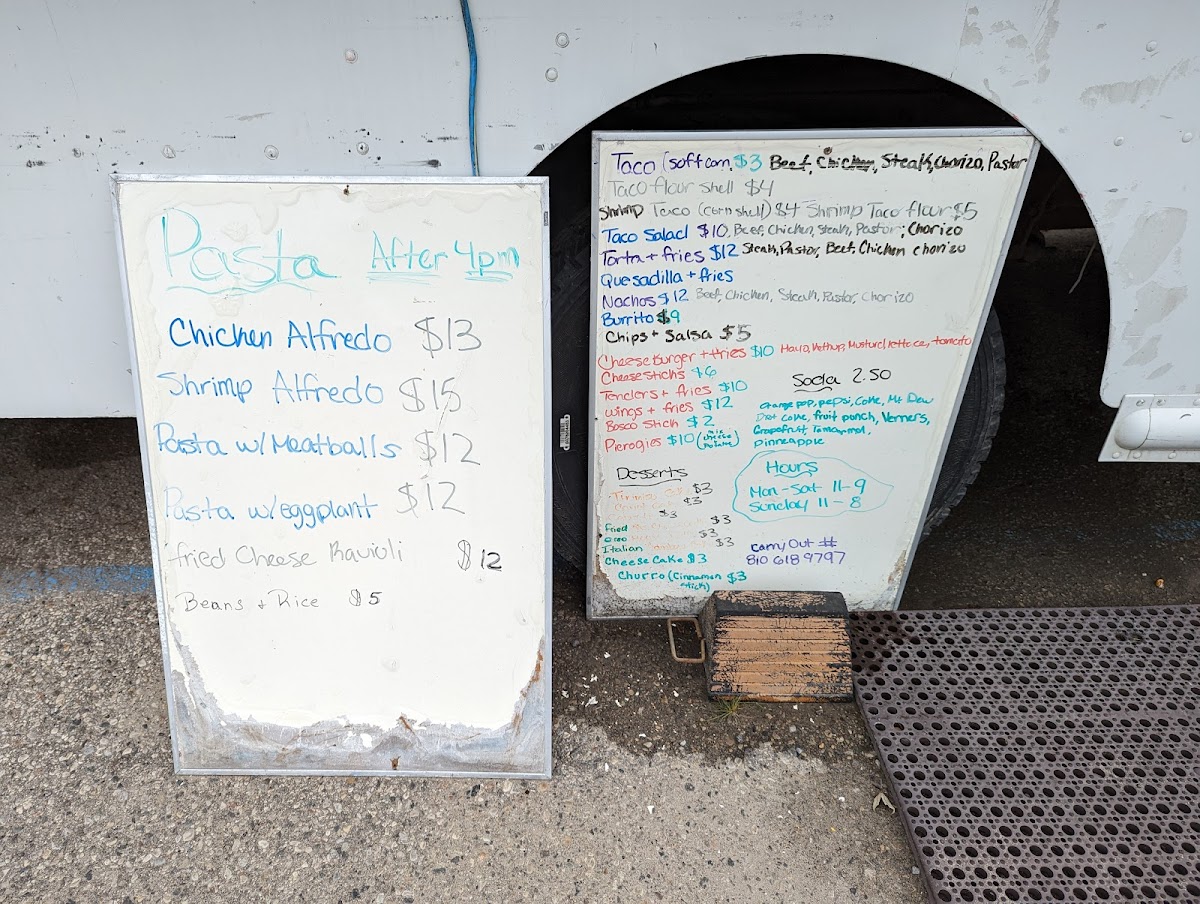 Pasta After 4pm
Chicken Alfredo $13
Shrimp Alfredo $15
Pasta w/Meatballs $12
Pasta w/eggplant $12
fried Cheese Ravioli $12
Beans + Rice $5
Taco (soft corn, $3 Beef, Chicken, Steak, Chorizo, Pastor
Taco flour shell $4
Shrimp Taco (corn shell) $4 Shrimp Taco flour $5
Taco Salad $10, Beef, Chicken, Steak, Pastor, Chorizo
Torta + fries $12 Steak, Pastor, Beef, Chicken chorizo
Quesadilla + fries
Nachos $12 Beef, Chicken, Steak, Pastor, Chorizo
Burrito $9
Chips + Salsa $5
Cheese Burger + fries $10 Mayo, Kethup, Musturd, lettuce, tomato
Cheese Sticks $6
Tenders + fries $10
wings + fries $12
Bosco Stick $2
Pierogies $10 (mix cheese potatoe)
Soda 2.50
orange pop, pepsi, Coke, Mt Dew
Diet Coke, fruit punch, Verners,
Grapefruit, Tamarind,
pinneapple
Hours
Mon-Sat 11-9
Sunday 11-8
Desserts
$3
$3
$3
Fried $3
oreo $3
Italian $3
Cheese Cake $3
Churro (Cinnamon stick) $3
Carry Out #
810 618 9797